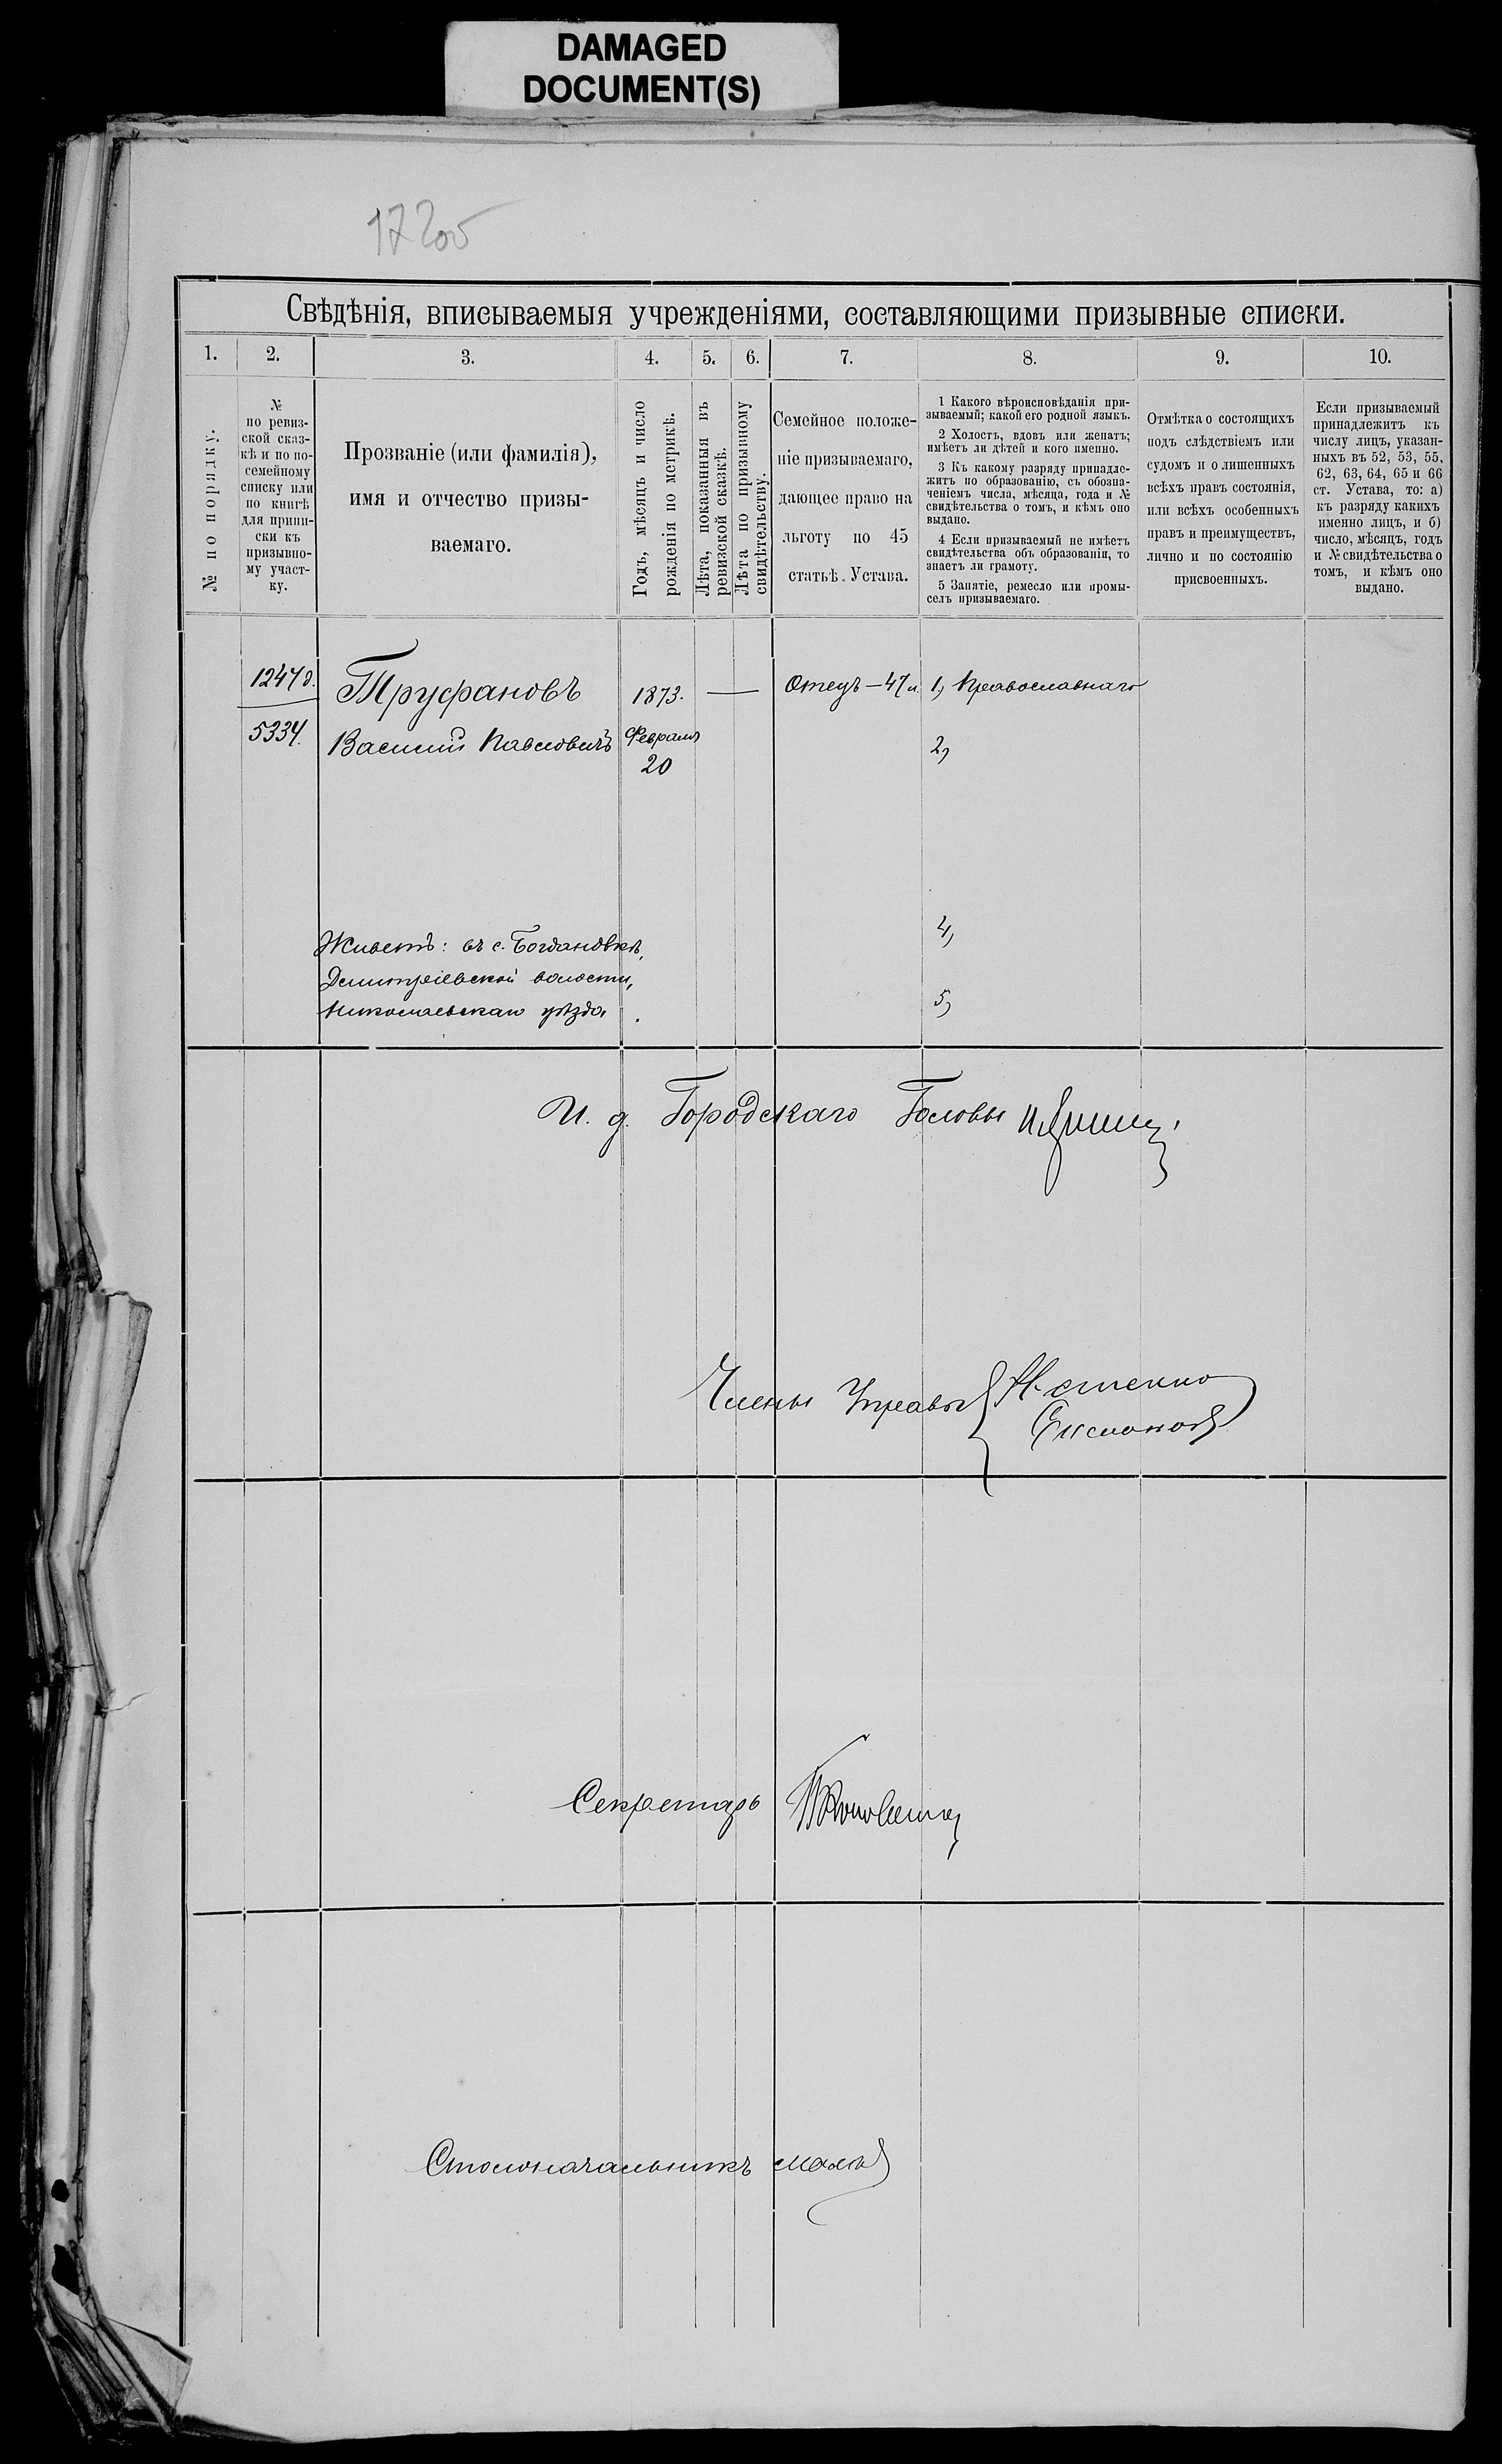 DAMAGED
DOCUMENT(S)
Свѣдѣнія, вписываемыя учрежденіями, составляющими призывные списки.
1.
2.
3.
4.
5.
6.
7.
8.
9.
10.
№ по порядку.
№
по ревиз-
ской сказ-
кѣ и по по-
семейному
списку или
по книгѣ
для припи-
ски къ
призывно-
му участ-
ку.
Прозваніе (или фамилія),
имя и отчество призы-
ваемаго.
Годъ, мѣсяцъ и число
рожденія по метрикѣ.
Лѣта, показанныя въ
ревизской сказкѣ.
Лѣта по призывному
свидѣтельству.
Семейное положе-
ніе призываемаго,
дающее право на
льготу по 45
статьѣ. Устава.
1 Какого вѣроисповѣданія при-
зываемый; какой его родной языкъ.
2 Холостъ, вдовъ или женатъ;
имѣетъ ли дѣтей и кого именно.
3 Къ какому разряду принадле-
житъ по образованію, съ обозна-
ченіемъ числа, мѣсяца, года и №
свидѣтельства о томъ, и кѣмъ оно
выдано.
4 Если призываемый не имѣетъ
свидѣтельства объ образованіи, то
знаетъ ли грамоту.
5 Занятіе, ремесло или промы-
селъ призываемаго.
Отмѣтка о состоящихъ
подъ слѣдствіемъ или
судомъ и о лишенныхъ
всѣхъ правъ состоянія,
или всѣхъ особенныхъ
правъ и преимуществъ,
лично и по состоянію
присвоенныхъ.
Если призываемый
принадлежитъ къ
числу лицъ, указан-
ныхъ въ 52, 53, 55,
62, 63, 64, 65 и 66
ст. Устава, то: а)
къ разряду какихъ
именно лицъ, и б)
число, мѣсяцъ, годъ
и № свидѣтельства о
томъ, и кѣмъ оно
выдано.
1247 д.
5334.
Труфановъ
Василій Павловичъ
1873.
Февраля
20
—
Отецъ – 47 л.
1, Православнаго
2,
4,
5,
Живетъ: въ с. Богдановкѣ,
Дмитріевской волости,
Николаевскаго уѣзда.
И. д. Городскаго Головы
Члены Управы
Секретарь
Столоначальникъ